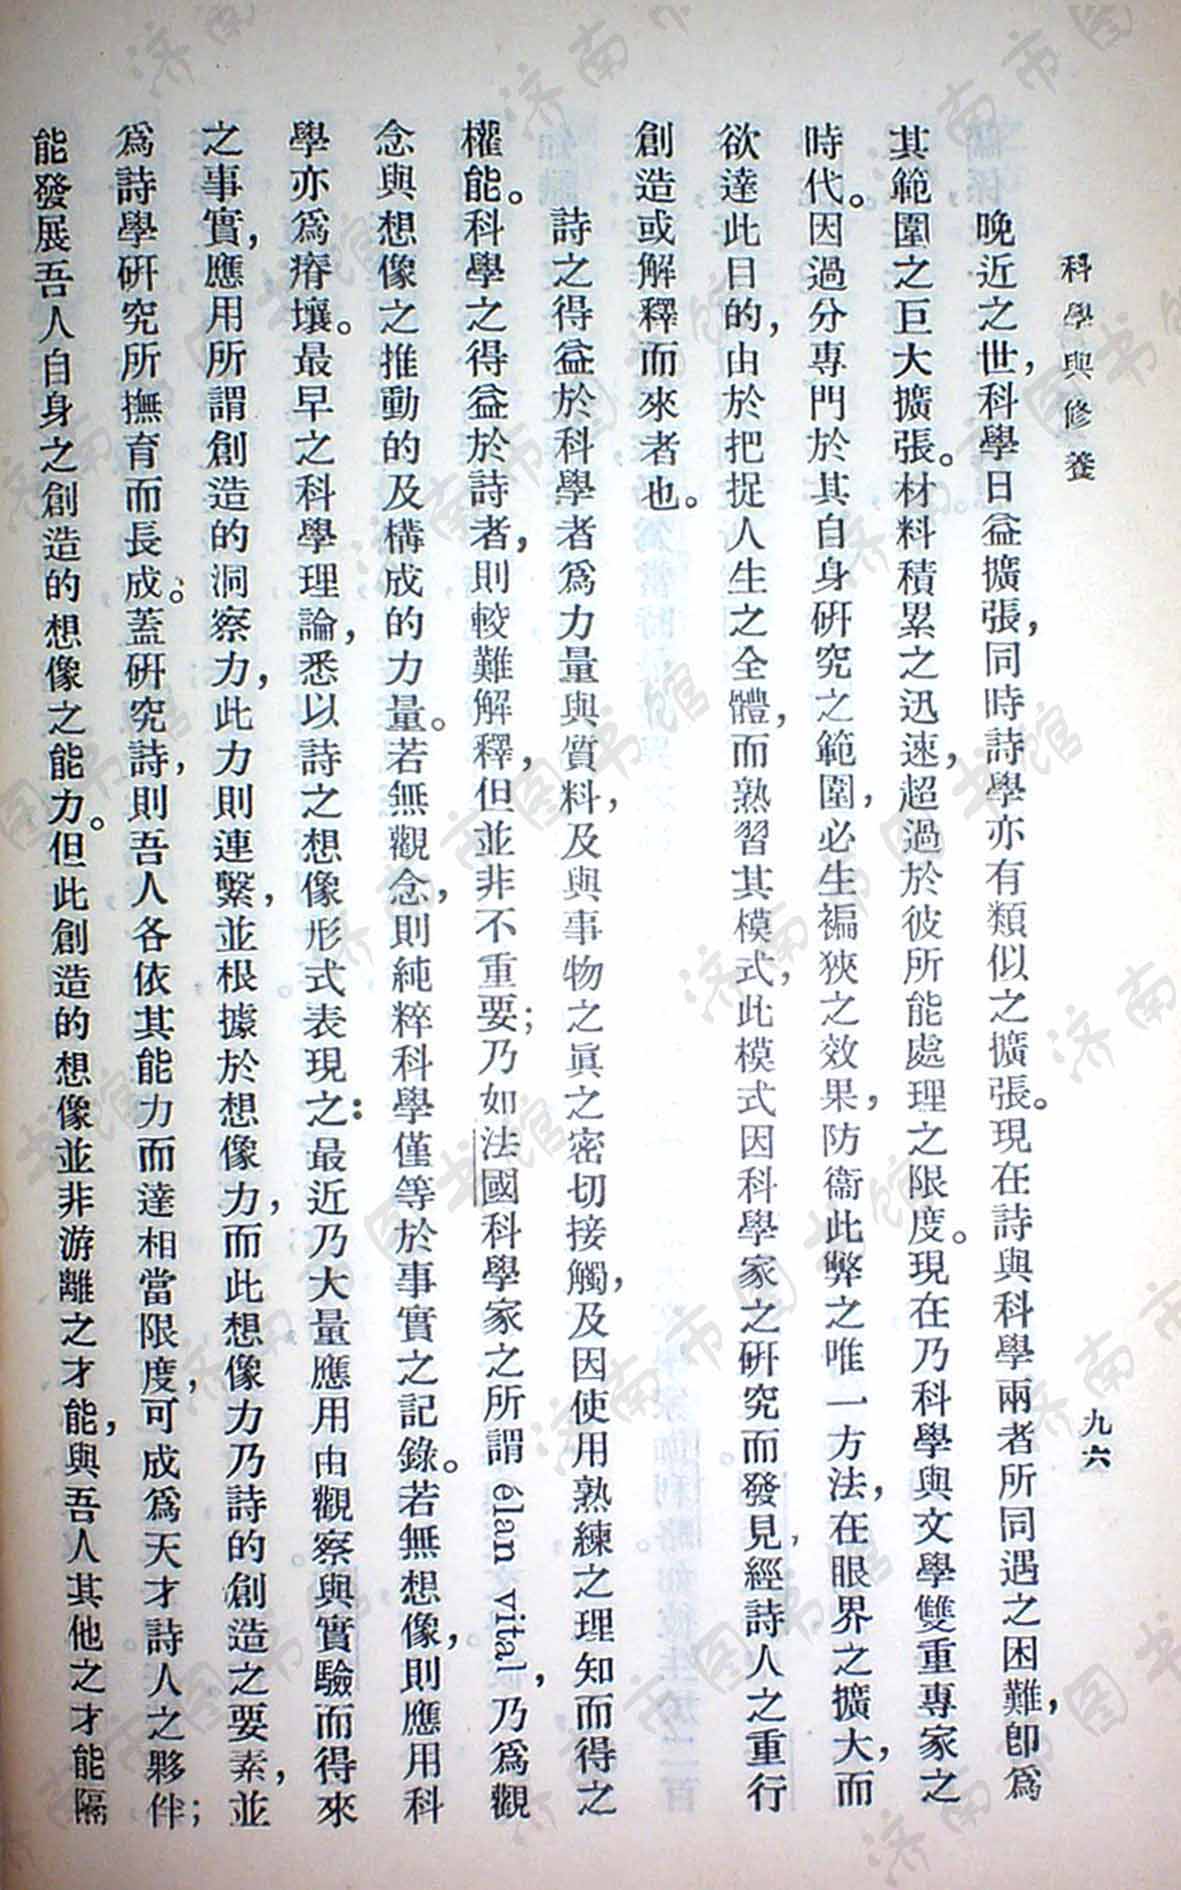 科學與修養
九六
晚近之世，科學日益擴張，同時詩學亦有類似之擴張。現在詩與科學兩者所同遇之困難，卽爲
其範圍之巨大擴張。材料積累之迅速，超過於彼所能處理之限度。現在乃科學與文學雙重專家之
時代。因過分專門於其自身硏究之範圍，必生褊狹之效果，防衞此弊之唯一方法，在眼界之擴大，而
欲達此目的，由於把捉人生之全體，而熟習其模式，此模式因科學家之硏究而發見，經詩人之重行
創造或解釋而來者也。
詩之得益於科學者爲力量與質料，及與事物之眞之密切接觸，及因使用熟練之理知而得之
權能。科學之得益於詩者，則較難解釋，但並非不重要；乃如法國科學家之所謂 élan vital，乃爲觀
念與想像之推動的及構成的力量。若無觀念，則純粹科學僅等於事實之記錄。若無想像，則應用科
學亦爲瘠壤。最早之科學理論，悉以詩之想像形式表現之：最近乃大量應用由觀察與實驗而得來
之事實，應用所謂創造的洞察力，此力則連繫，並根據於想像力，而此想像力乃詩的創造之要素，並
爲詩學硏究所撫育而長成。蓋硏究詩，則吾人各依其能力而達相當限度，可成爲天才詩人之夥伴；
能發展吾人自身之創造的想像之能力。但此創造的想像並非游離之才能，與吾人其他之才能隔
济南市图书馆